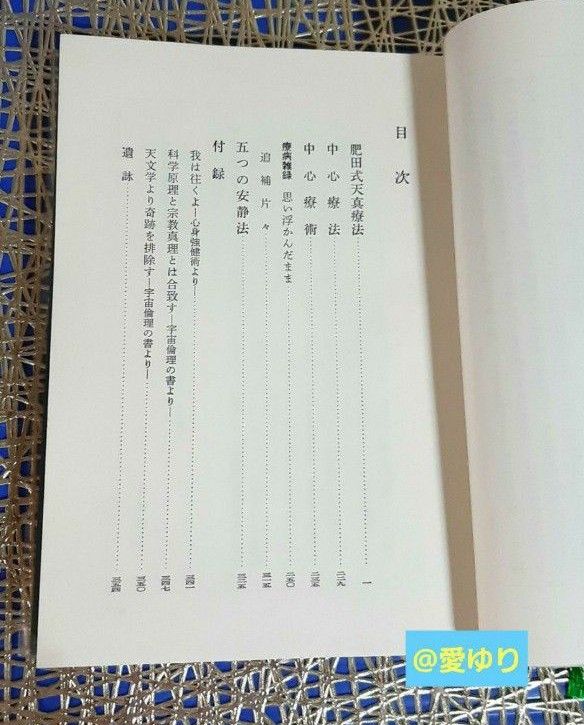 目次
肥田式天真療法 一
中心療法 二二九
中心療術 二三五
療病雑録 思い浮かんだまま 二五〇
追補片々 三一五
五つの安静法 三三五
付録
我は往くよ―心身強健術より― 三四一
科学原理と宗教真理とは合致す―宇宙倫理の書より― 三四七
天文学より奇跡を排除す―宇宙倫理の書より― 三五〇
遺詠 三五四
@愛ゆり